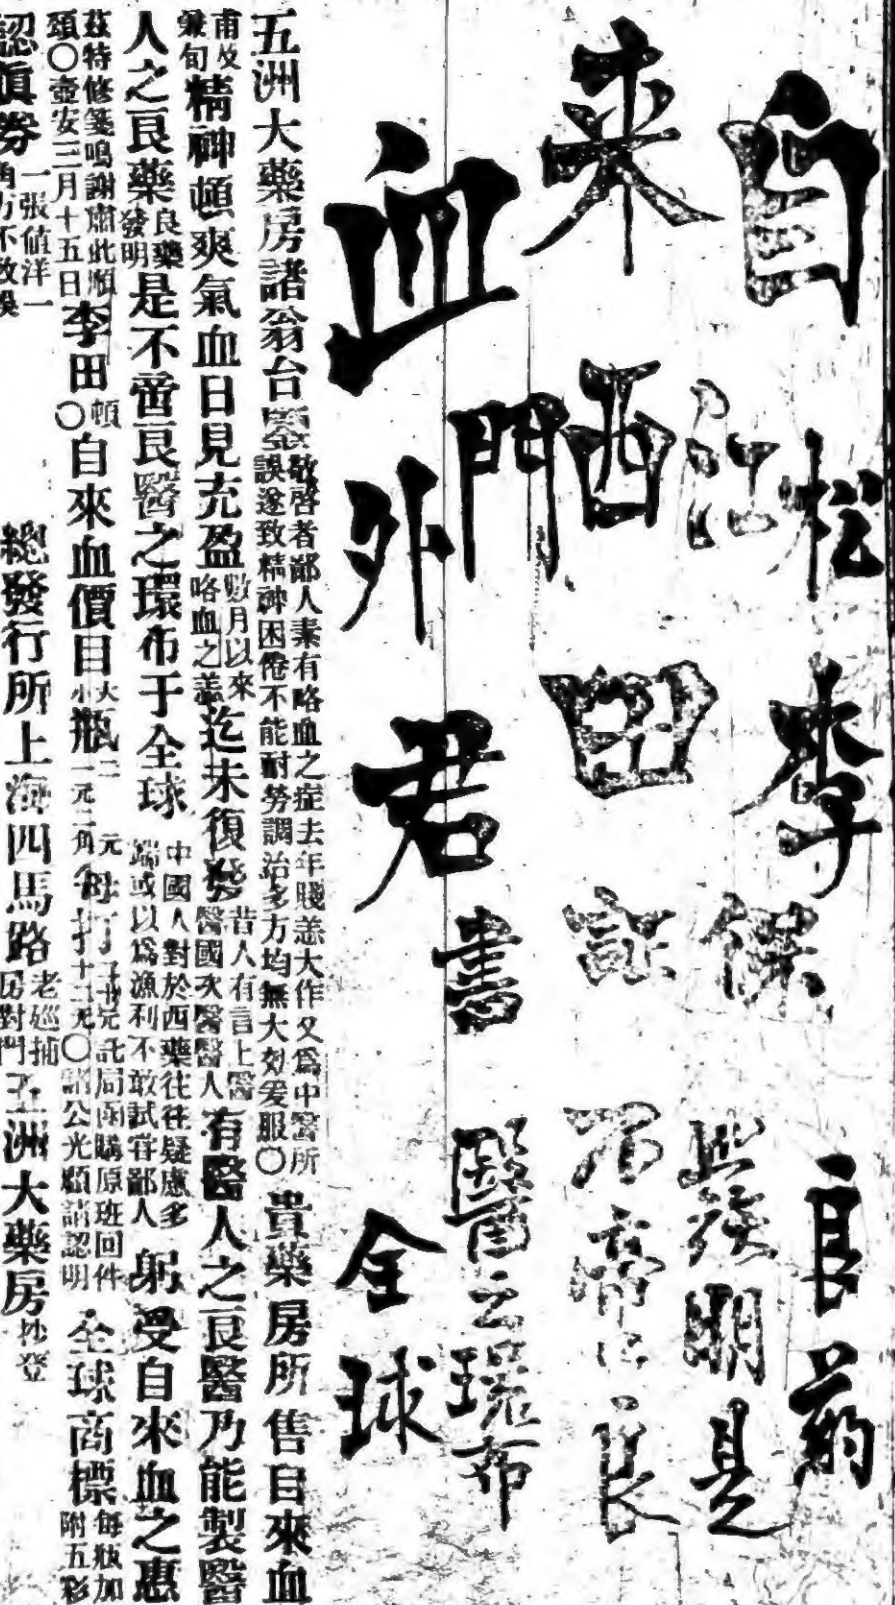 自來血
松江西門外
李田君書
良药發明是
不啻良
醫之環布
全球
五洲大藥房諸翁台鑒敬啓者鄙人素有咯血之症去年賤恙大作又爲中醫所誤遂致精神困倦不能耐勞調治多方均無大効爰服〇貴藥房所售自來血
甫及兼旬精神頓爽氣血日見充盈數月以來咯血之恙迄未復發昔人有言上醫醫國次醫醫人有醫人之良醫乃能製醫
人之良藥良藥發明是不啻良醫之環布于全球中國人對於西藥往往疑慮多端或以爲漁利不敢試甞鄙人躬受自來血之惠
茲特修箋鳴謝肅此順頌〇壺安三月十五日李田頓〇自來血價目大瓶二元小瓶一元二角每打二十元十二元〇託局函購原班回件諸公光顧請認明全球商標每瓶加附五彩
認真券一張値洋一角方不致悞總發行所上海四馬路老巡捕房對門五洲大藥房抄登